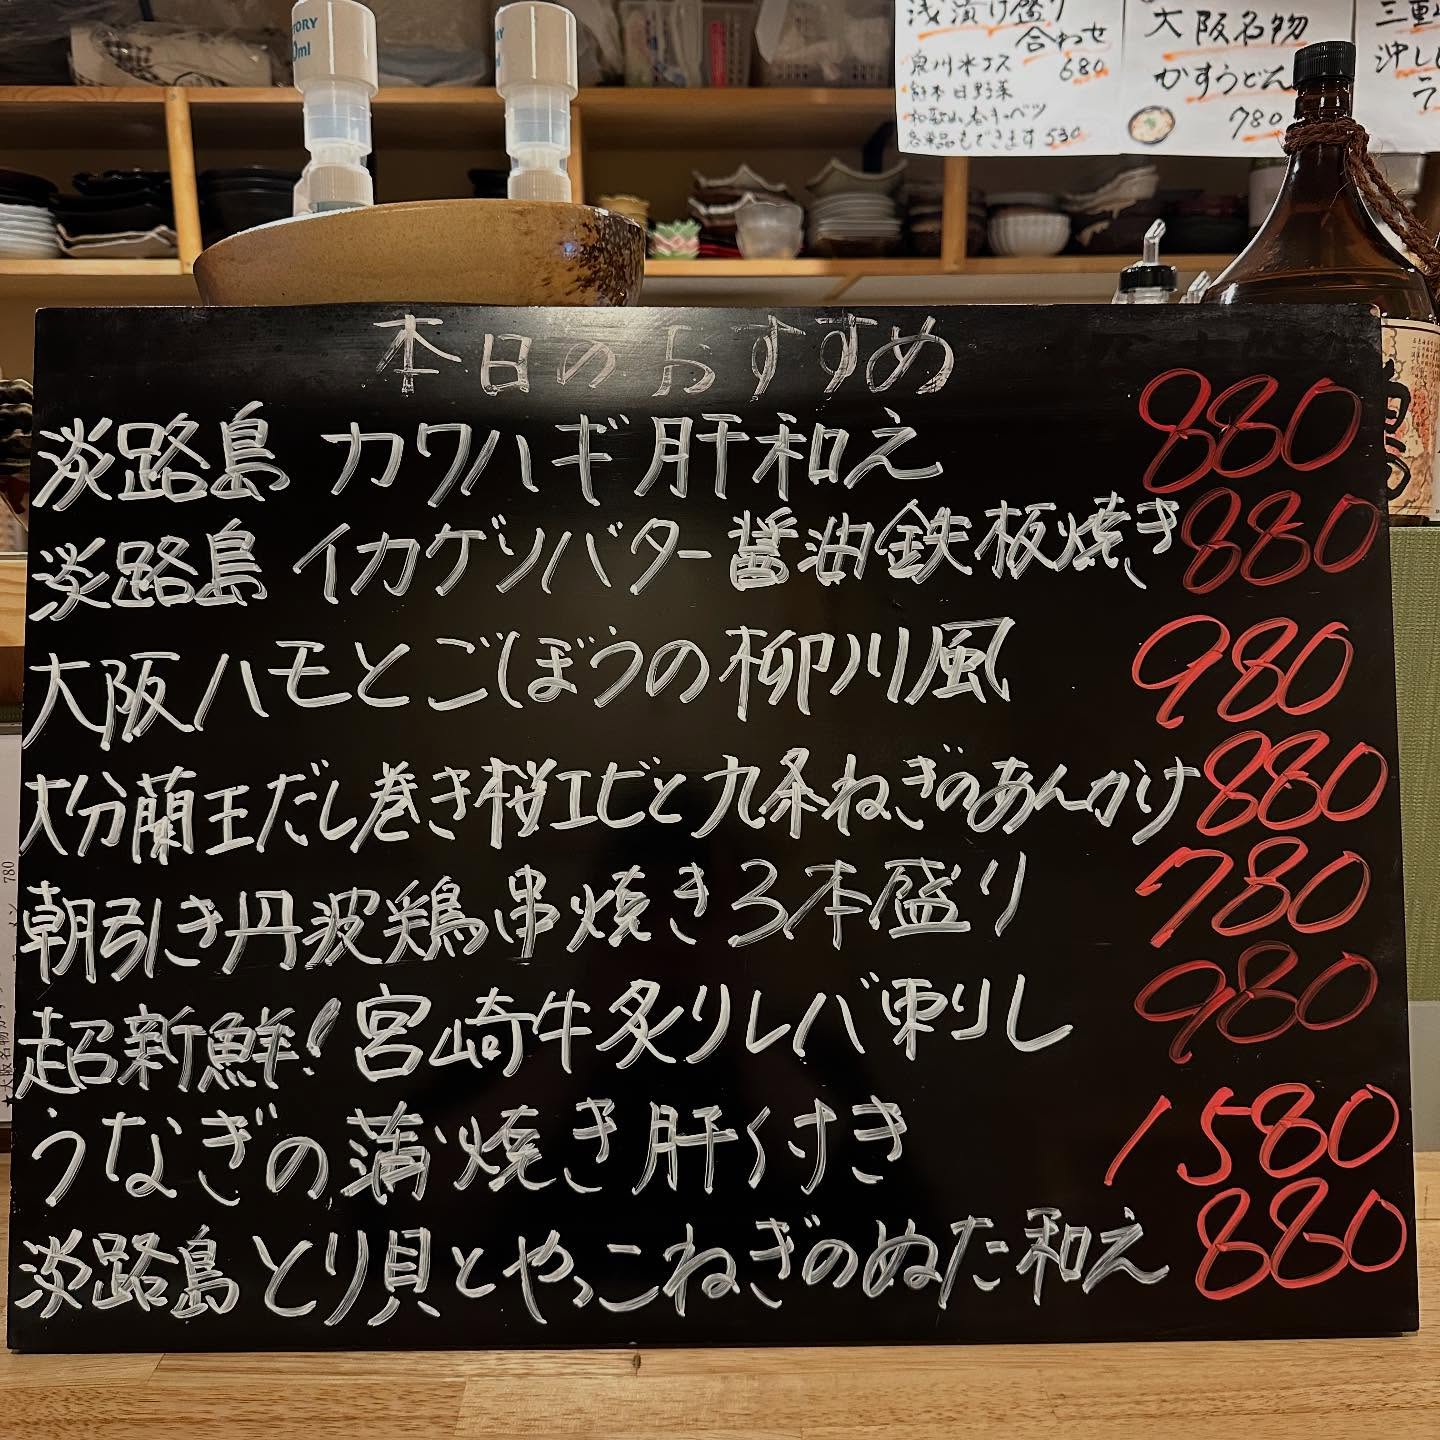 TORY
ml
浅漬け盛り
合わせ
泉州水ナス 680
熊本日野菜
和歌山春キャベツ
各単品もできます 530
大阪名物
かすうどん
780
三重
沖し
ラ
本日のおすすめ
淡路島 カワハギ肝和え 880
淡路島 イカゲソバター醤油鉄板焼き 880
大阪ハモとごぼうの柳川風 980
大分蘭王だし巻き桜エビと九条ねぎのあんかけ 880
朝引き丹波鶏串焼き3本盛り 780
超新鮮!宮崎牛炙りレバ刺し 980
うなぎの蒲焼き肝付き 1580
淡路島とり貝とやっこねぎのぬた和え 880
780
★大阪名物か